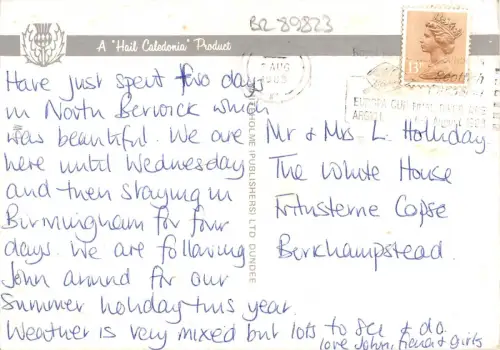 BR 89823
A "Hail Caledonia" Product
Have just spent two days
in North Berwick which
was beautiful. We are
here until Wednesday
and then staying in
Birmingham for four
days. We are following
John around for our
Summer holiday this year.
Weather is very mixed but lots to see & do
love John, Fiona & girls
Mr & Mrs L. Holliday
The White House
Copse
Berkhampstead.
HOLME (PUBLISHERS) LTD DUNDEE
AUG
EUROPA CUP FINAL
ARGYLL
August 1983